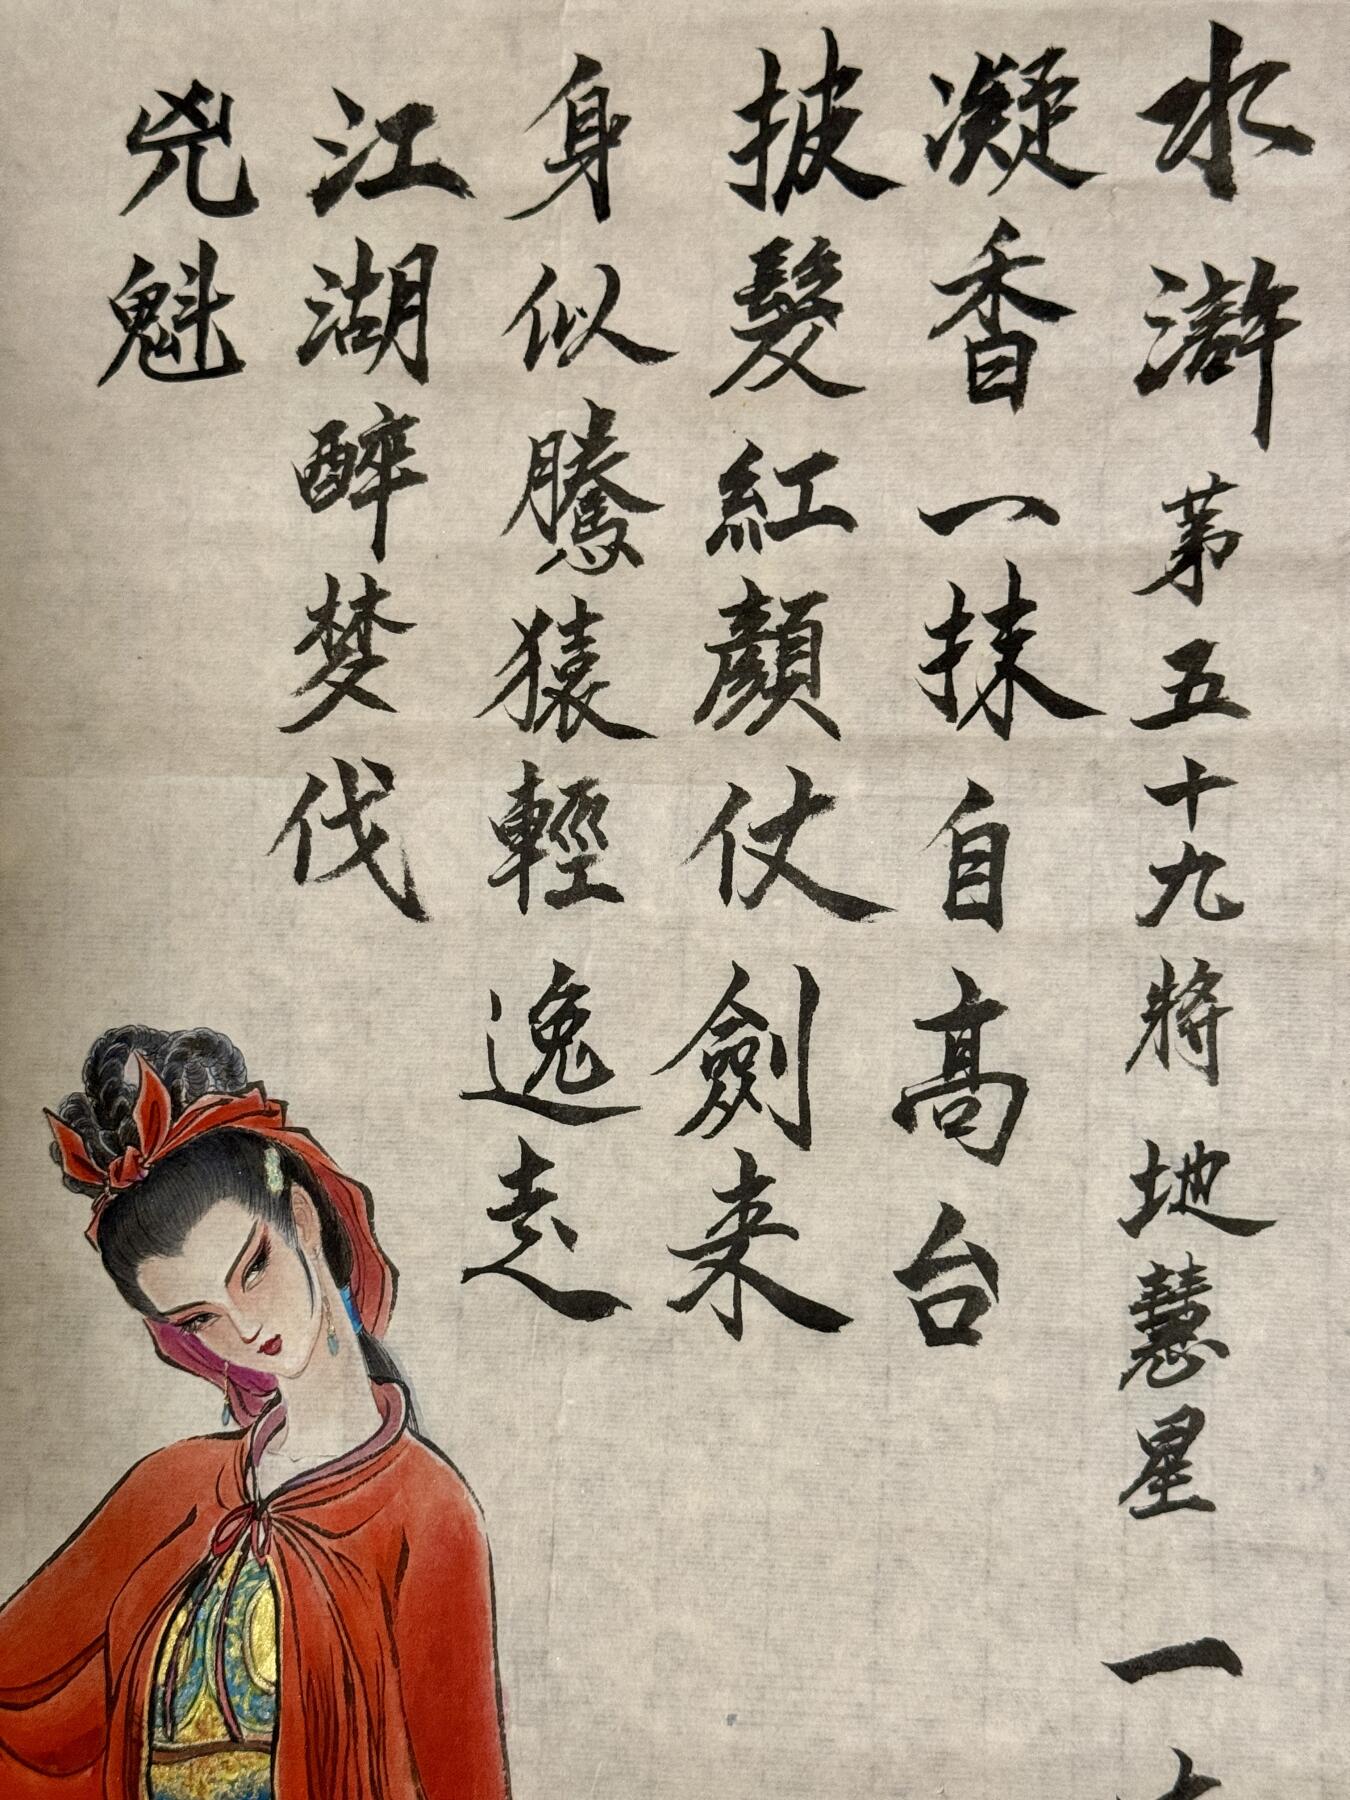 水滸 第五十九將 地慧星 一
凝香一抹自高台
披髮紅顏仗劍来
身似騰猿輕逸去
江湖醉梦伐
兇魁